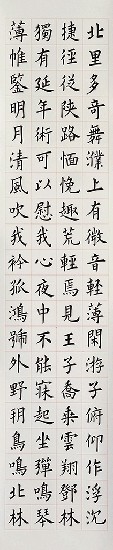 北里多奇舞濮上有微音輕薄閑游子俯仰作浮沉
捷徑從陜路愐悗趣荒輕焉見王子喬乘雲翔鄧林
獨有延年術可以慰我心夜中不能寐起坐彈鳴琴
薄帷鋻明月清風吹我衿孤鴻號外野玥鳥鳴北林